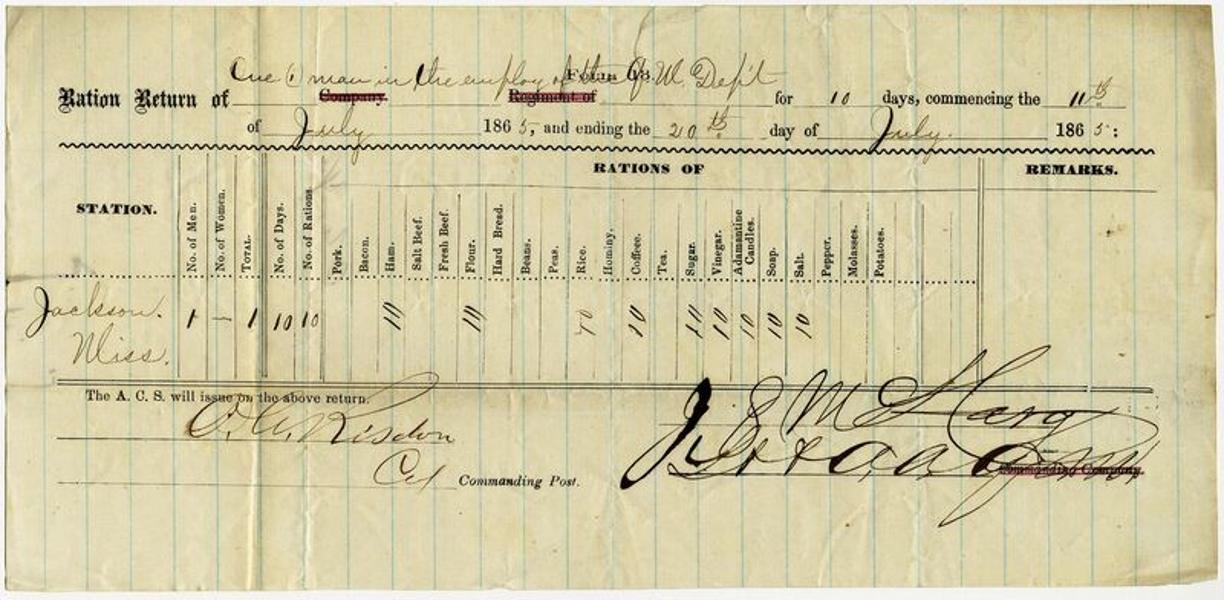 Form 13.
One (1) man in the employ of the Q M Dep't
Ration Return of Company. Regiment of for 10 days, commencing the 11th
of July 1865, and ending the 20th day of July. 1865:
RATIONS OF REMARKS.
STATION. No. of Men. No. of Women. TOTAL. No. of Days. No. of Rations Pork. Bacon. Ham. Salt Beef. Fresh Beef. Flour. Hard Bread. Beans. Peas. Rice. Hominy. Coffee. Tea. Sugar. Vinegar. Adamantine Candles. Soap. Salt. Pepper. Molasses. Potatoes.
Jackson. 1 — 1 10 10 10 10 10 10 10 10 10 10 10
Miss.
The A. C. S. will issue on the above return.
O. C. Risdon
Col Commanding Post.
Commanding Company.